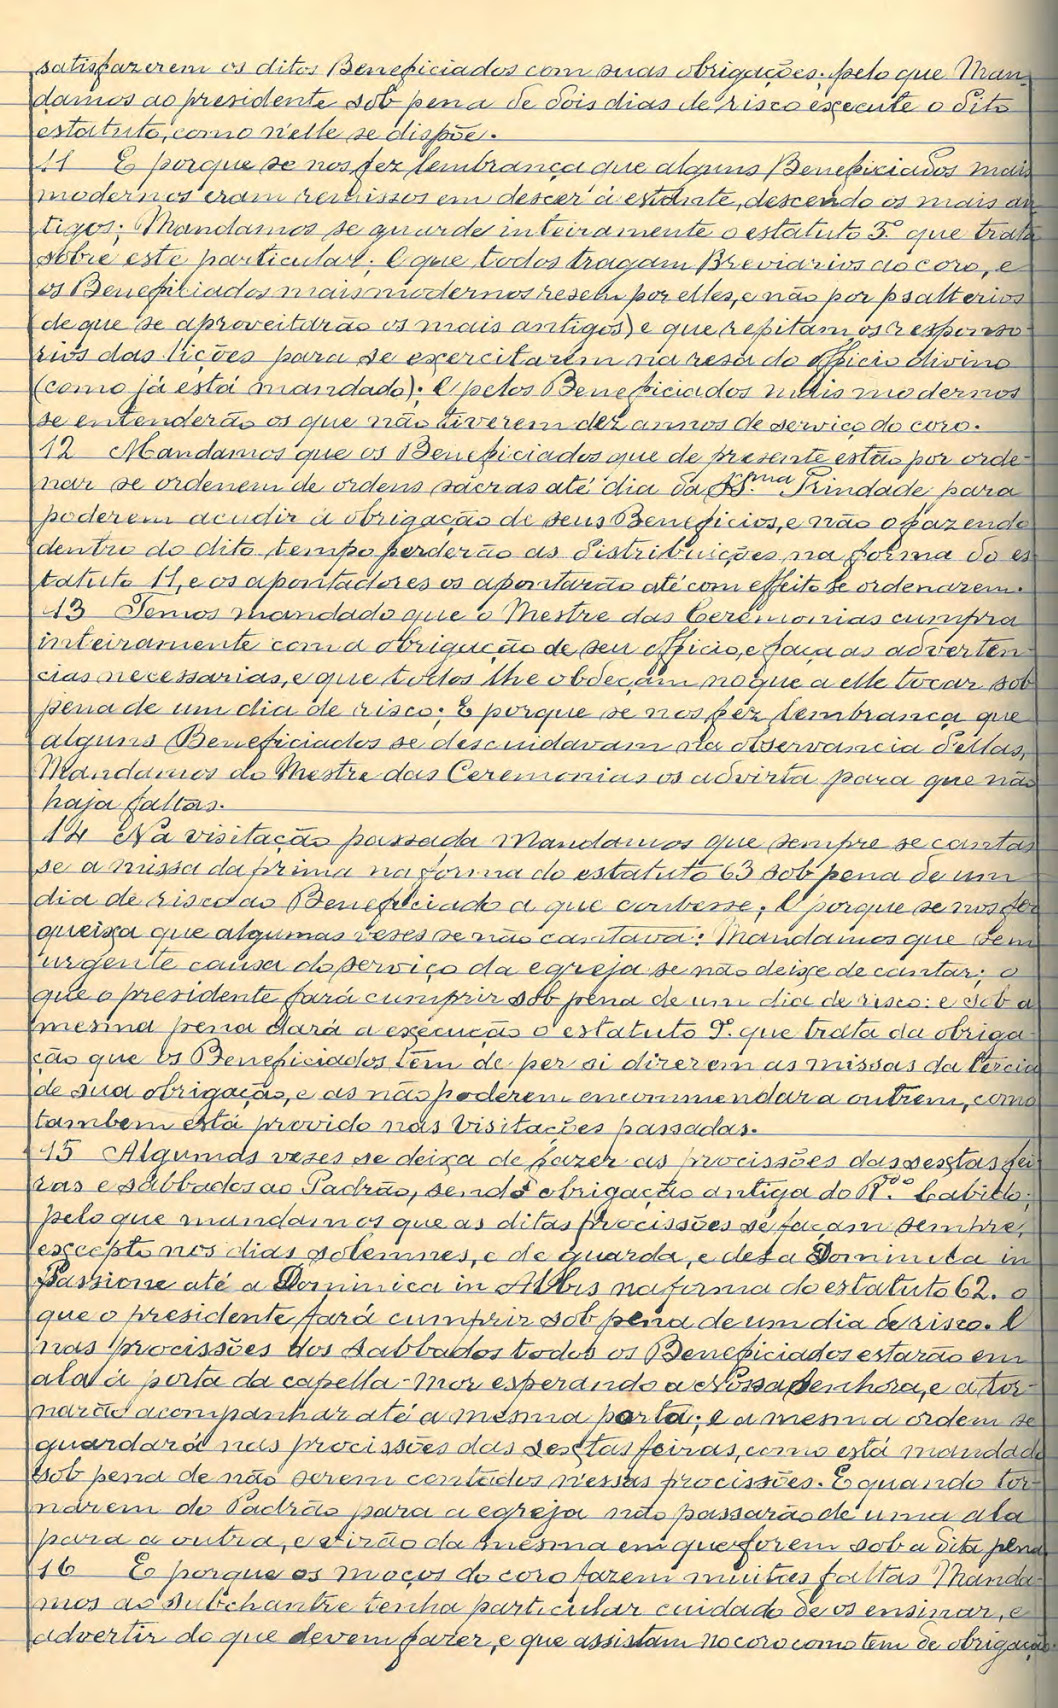 satisfazerem os ditos Beneficiados com suas obrigações; pelo que Man-
damos ao presidente sob pena de dois dias de risco execute o dito
estatuto, como n'elle se dispõe.
11 E porque se nos fez lembrança que alguns Beneficiados mais
modernos eram remissos em descer á estante, descendo os mais an-
tigos; Mandamos se guarde inteiramente o estatuto 3.º que trata
sobre este particular; E que todos tragam Breviarios ao coro, e
os Beneficiados mais modernos resem por elles, e não por psalterios
de que se aproveitarão os mais antigos) e que repitam os responso-
rios das lições para se exercitarem na resa do officio divino
(como já está mandado); E pelos Beneficiados mais modernos
se entenderão os que não tiverem dez annos de serviço do coro.
12 Mandamos que os Beneficiados que de presente estão por orde-
nar se ordenem de ordens sacras até dia da SS.ma Trindade para
poderem acudir á obrigação de seus Beneficios, e não o fazendo
dentro do dito tempo perderão as distribuições na forma do es-
tatuto 11, e os apontadores os apontarão até com effeito se ordenarem.
13 Temos mandado que o Mestre das Ceremonias cumpra
inteiramente com a obrigação de seu officio, e faça as adverten-
cias necessarias, e que todos lhe obdeçam no que a elle tocar sob
pena de um dia de risco; E porque se nos fez lembrança que
alguns Beneficiados se descuidavam na observancia d'ellas,
Mandamos ao Mestre das Ceremonias os advirta para que não
haja faltas.
14 Na visitação passada Mandamos que sempre se cantas-
se a missa da prima na forma do estatuto 63 sob pena de um
dia de risco ao Beneficiado a que coubesse; E porque se nos fez
queixa que algumas veses se não cantava: Mandamos que sem
urgente causa do serviço da egreja se não deixe de cantar; o
que o presidente fará cumprir sob pena de um dia de risco: e sob a
mesma pena dará a execução o estatuto 9.º que trata da obriga-
ção que os Beneficiados têm de per si dizerem as missas da Tercia
de sua obrigação, e as não poderem encommendar a outrem, como
tambem está provido nas Visitações passadas.
15 Algumas vezes se deixa de fazer as procissões das sextas fei-
ras e sabbados ao Padrão, sendo obrigação antiga do R.do Cabido;
pelo que mandamos que as ditas procissões se façam sempre,
excepto nos dias solemnes, e de guarda, e des a Dominica in
Passione até a Dominica in Albis na forma do estatuto 62. o
que o presidente fará cumprir sob pena de um dia de risco. E
nas procissões dos sabbados todos os Beneficiados estarão em
ala á porta da capella-mor esperando a Nossa Senhora, e a tor-
narão acompanhar até a mesma porta; e a mesma ordem se
guardará nas procissões das sextas feiras, como está mandado
sob pena de não serem contados n'essas procissões. E quando tor-
narem do Padrão para a egreja não passarão de uma ala
para a outra, e virão da mesma em que forem sob a dita pena
16 E porque os moços do coro fazem muitas faltas Manda-
mos ao subchantre tenha particular cuidado de os ensinar, e
advertir do que devem fazer, e que assistam no coro como tem de obrigação.